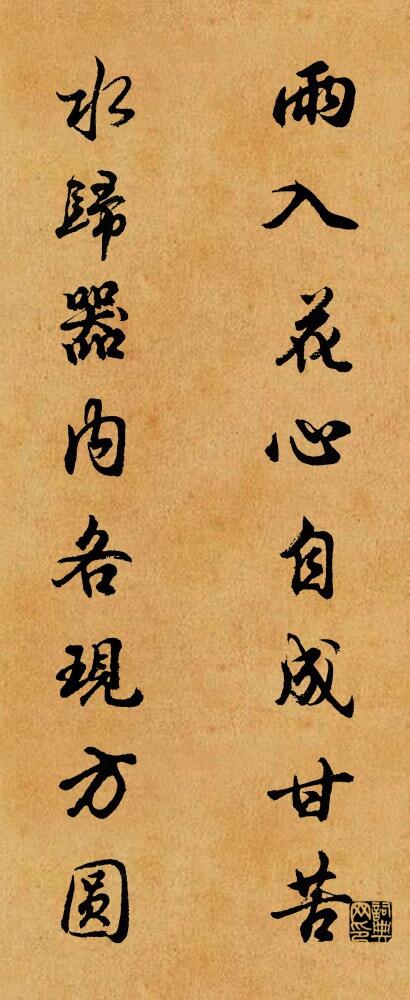 雨入花心自成甘苦
水歸器内各現方圓
詞典網印